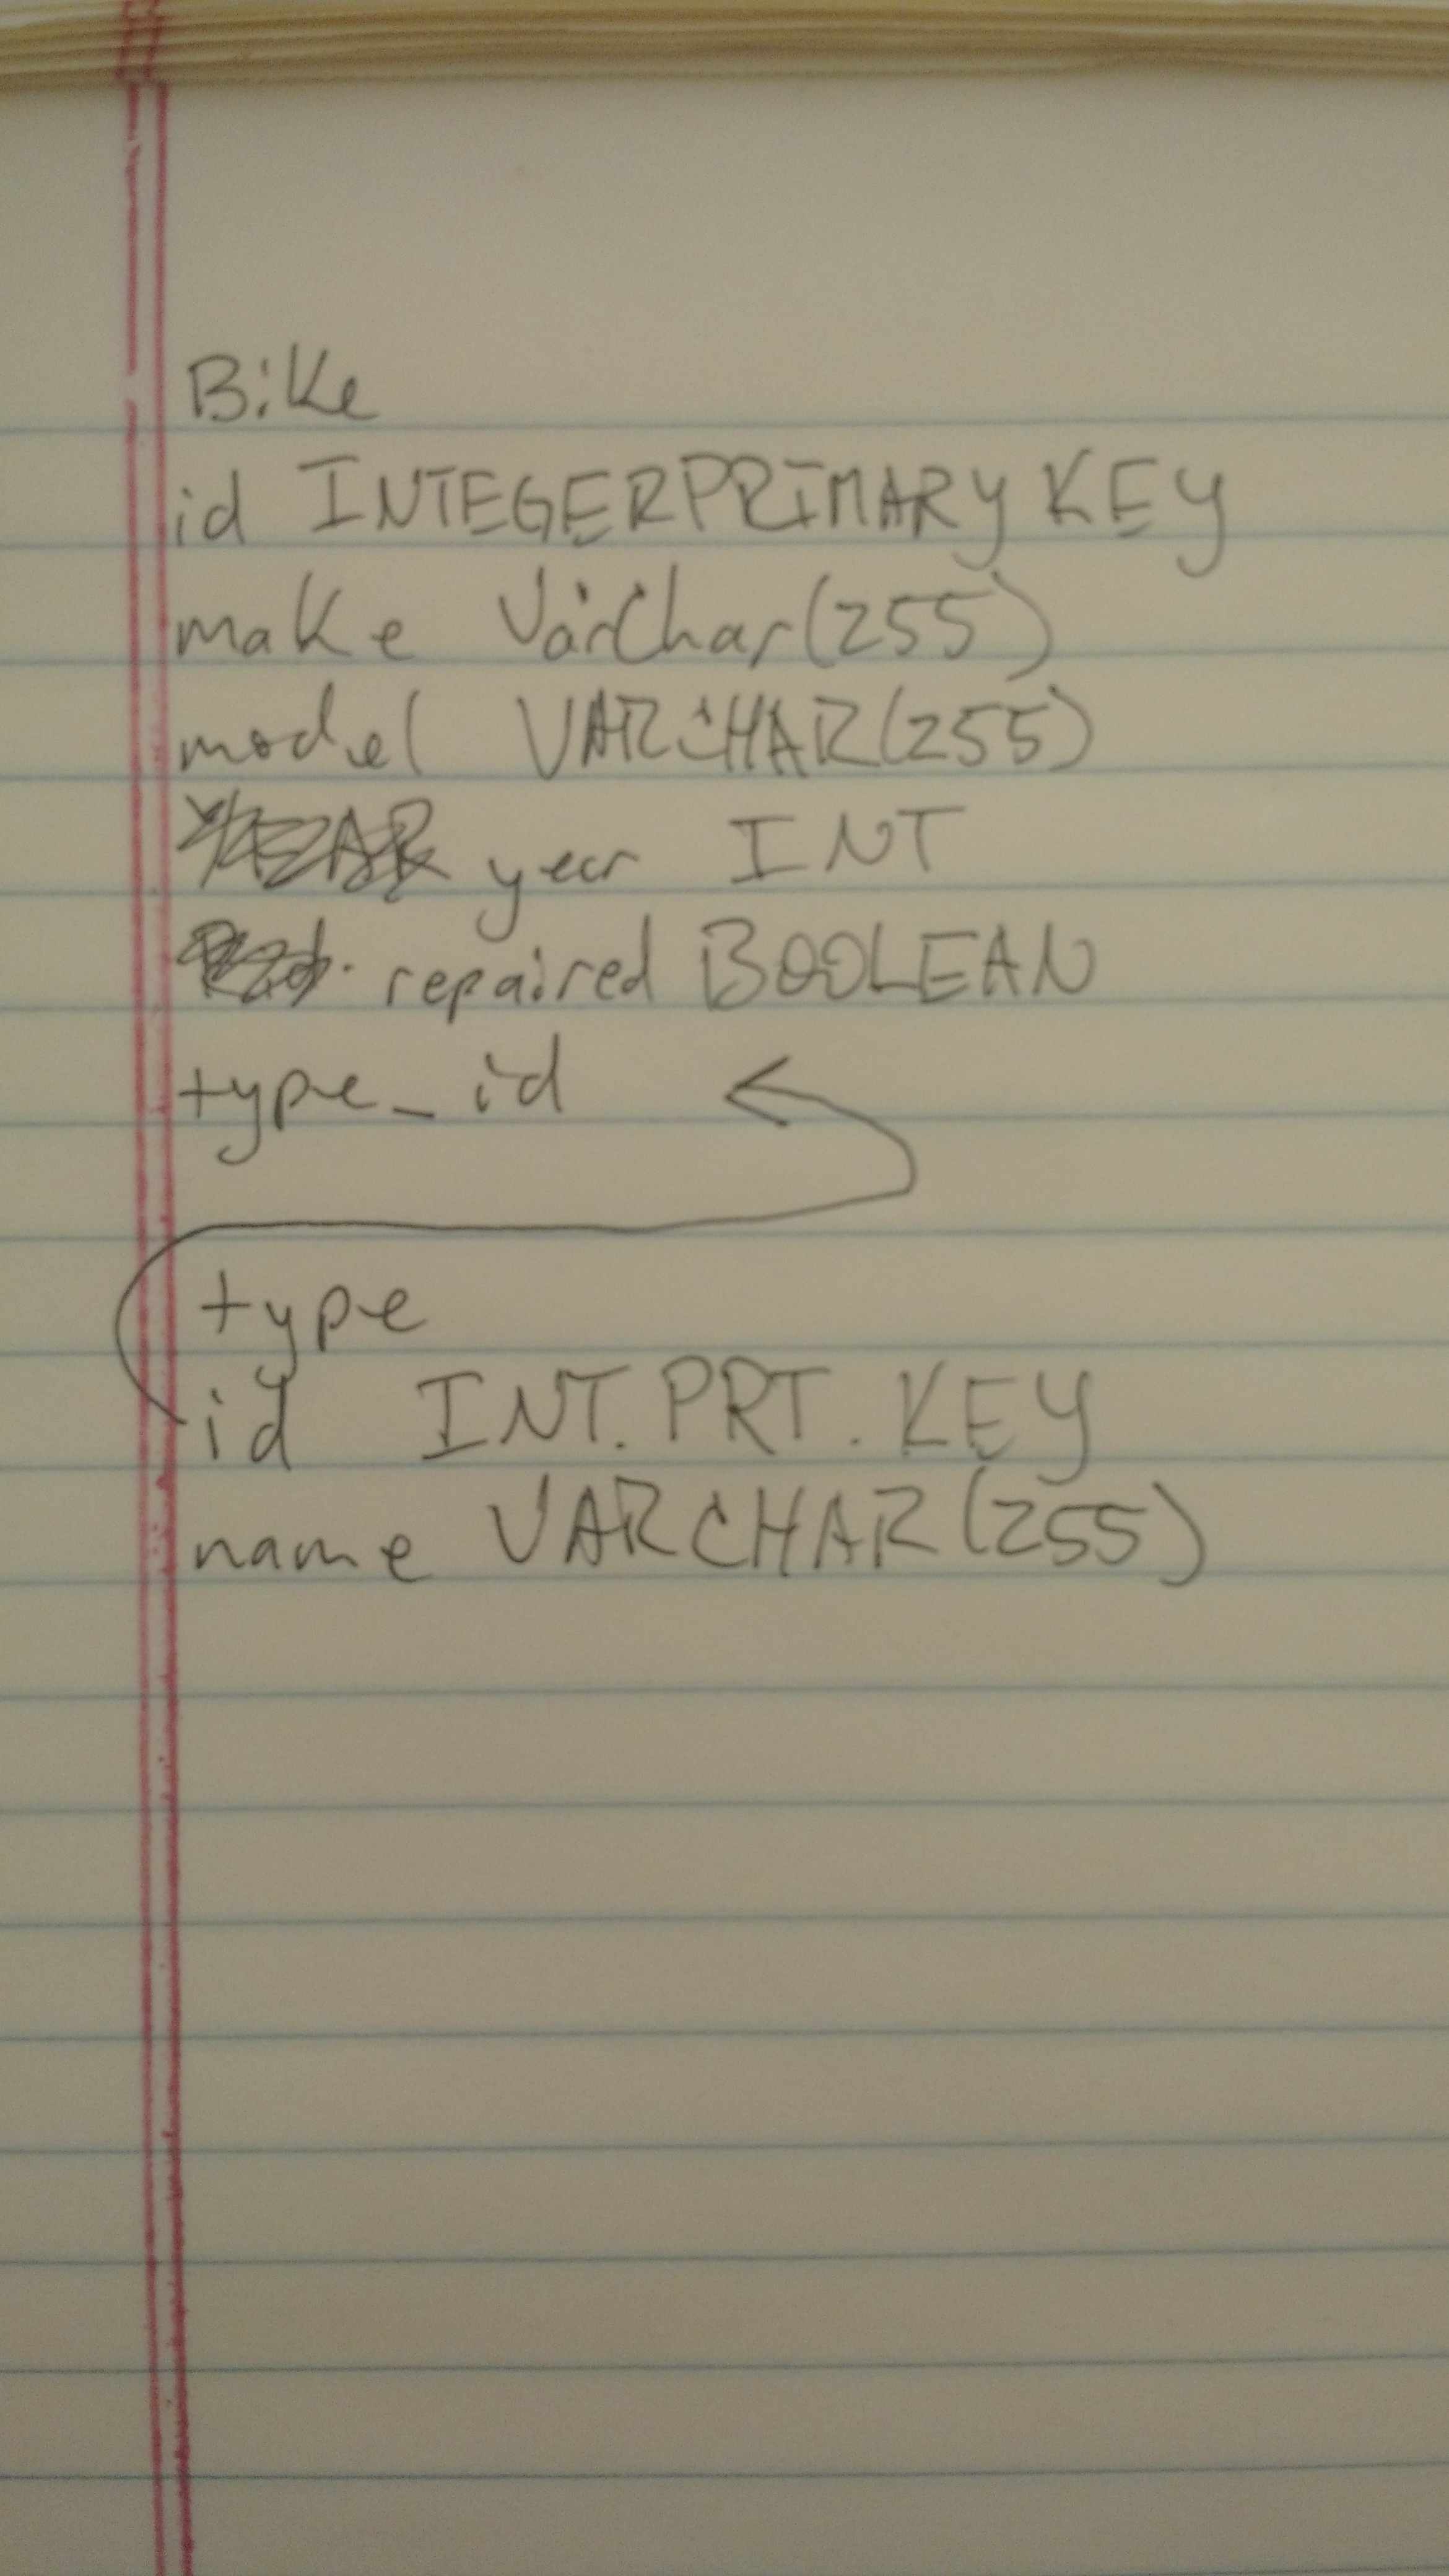 Bike
id INTEGER PRIMARY KEY
make VarChar(255)
model VARCHAR(255)
year INT
repaired BOOLEAN
type_id
type
id INT. PRI. KEY
name VARCHAR(255)